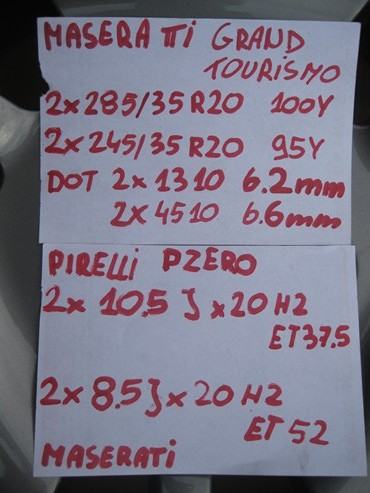 MASERATTI GRAND
TOURISMO
2x285/35 R20 100Y
2x245/35R20 95Y
DOT 2x1310 6.2mm
2x4510 6.6mm
PIRELLI PZERO
2x 10.5 J x20 H2
ET37.5
2x 8.5J x 20 H2
ET 52
MASERATI